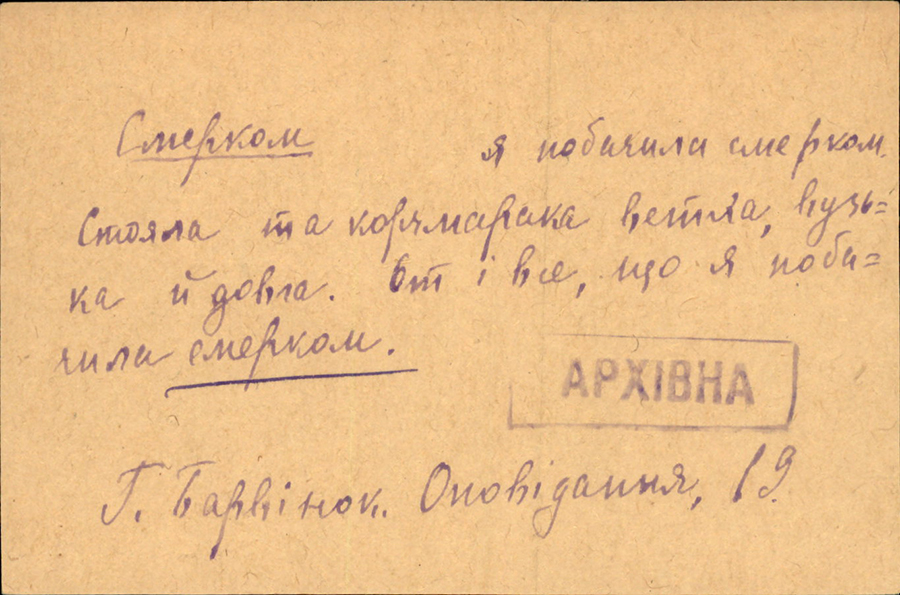 Смерком я побачила смерком.
Стояла та корчмарака ветха, вузь=
ка й довга. От і все, що я поба=
чила смерком.
АРХІВНА
Г. Барвінок. Оповідання, 19.